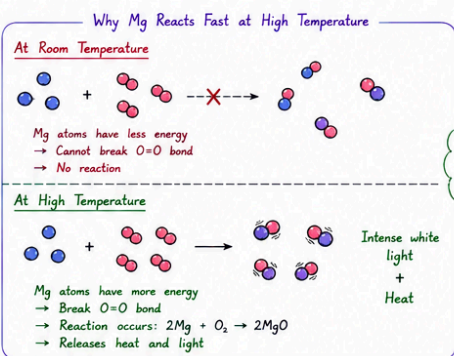 Why Mg Reacts Fast at High Temperature
At Room Temperature
+
Mg atoms have less energy
→ Cannot break O=O bond
→ No reaction
At High Temperature
+
Intense white
light
+
Heat
Mg atoms have more energy
→ Break O=O bond
→ Reaction occurs: 2Mg + O₂ → 2MgO
→ Releases heat and light